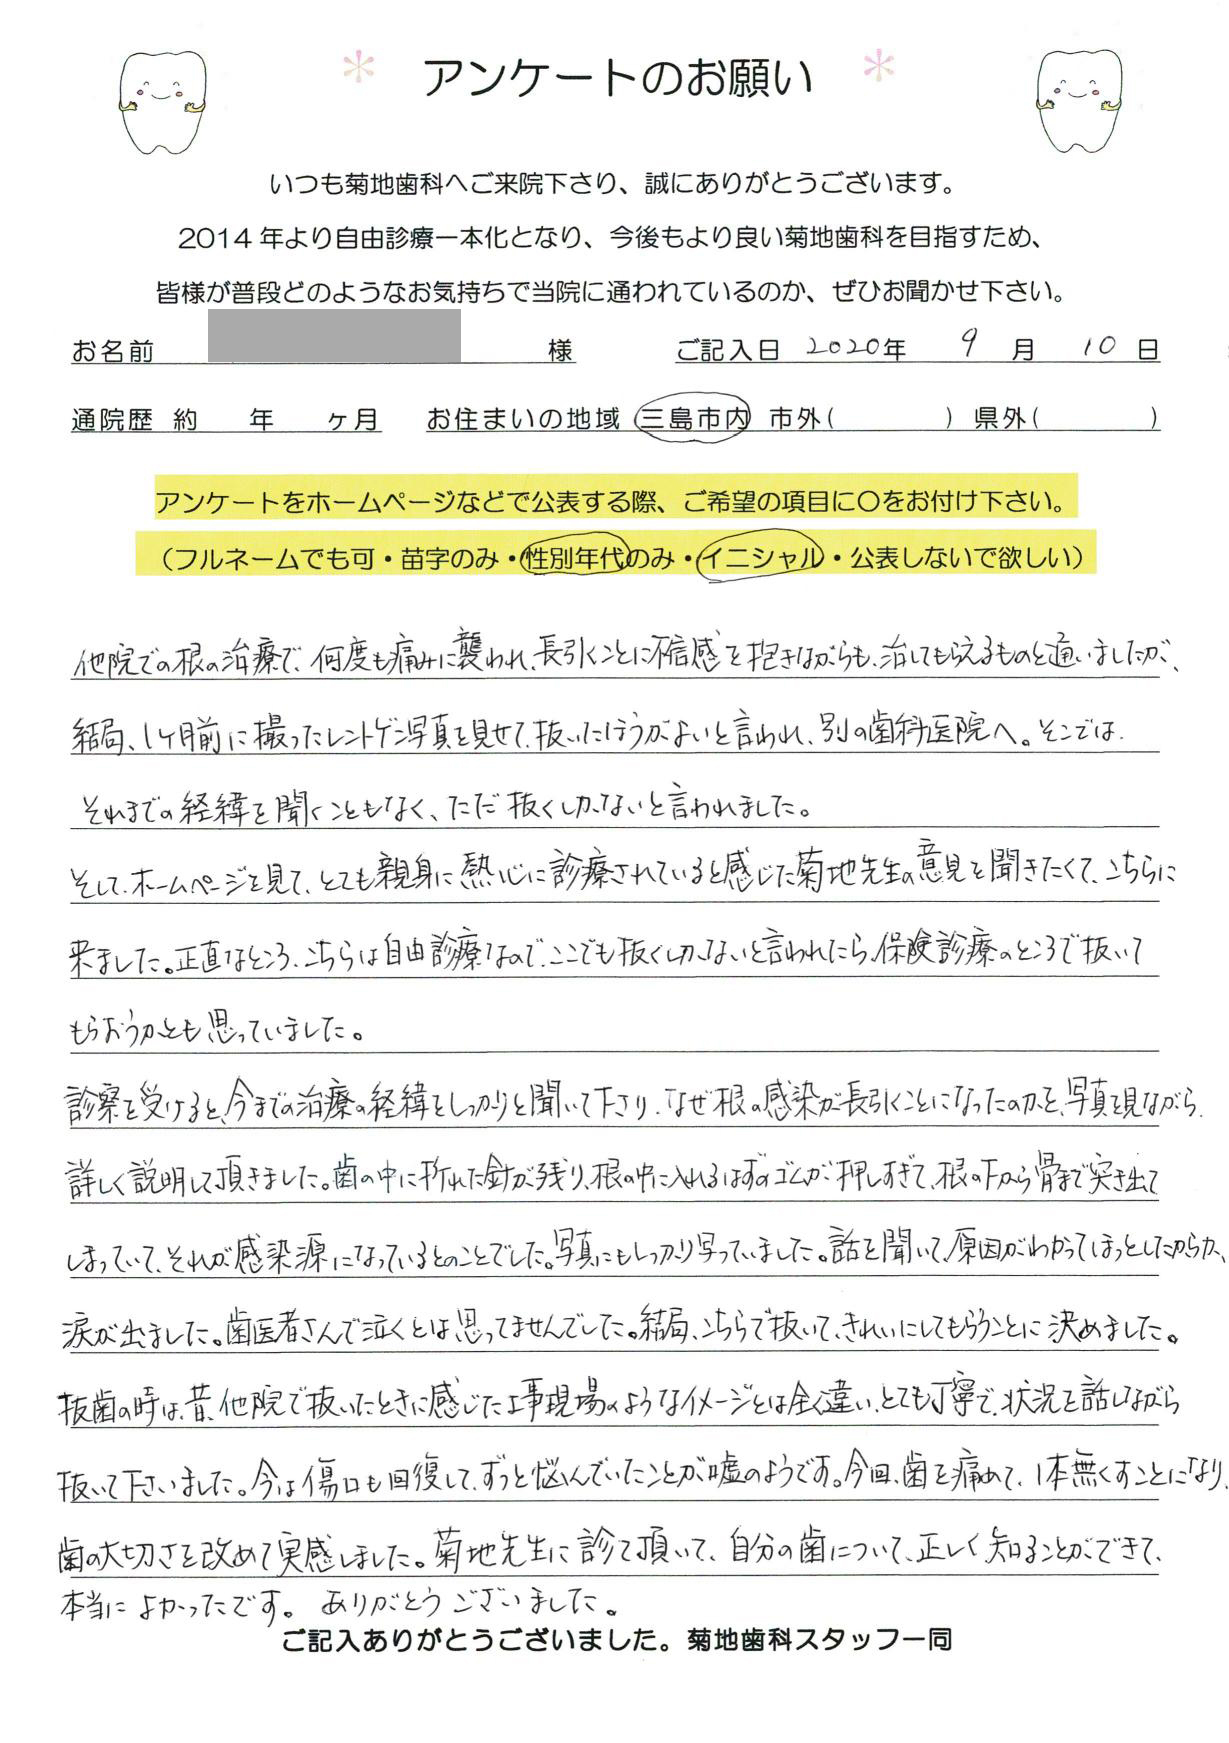 アンケートのお願い
いつも菊地歯科へご来院下さり、誠にありがとうございます。
2014年より自由診療一本化となり、今後もより良い菊地歯科を目指すため、
皆様が普段どのようなお気持ちで当院に通われているのか、ぜひお聞かせ下さい。
お名前 様 ご記入日 2020年 9月 10日
通院歴 約 年 ヶ月 お住まいの地域 三島市内 市外( ) 県外( )
アンケートをホームページなどで公表する際、ご希望の項目に〇をお付け下さい。
（フルネームでも可・苗字のみ・性別年代のみ・イニシャル・公表しないで欲しい）
他院での根の治療で、何度も痛みに襲われ、長引くことに不信感を抱きながらも、治してもらえるものと通いましたが、
結局、1ヶ月前に撮ったレントゲン写真を見せて、抜いたほうがよいと言われ、別の歯科医院へ。そこでは、
それまでの経緯を聞くこともなく、ただ抜くしかないと言われました。
そして、ホームページを見て、とても親身に熱心に診療されていると感じた菊地先生の意見を聞きたくて、こちらに
来ました。正直なところ、こちらは自由診療なので、ここでも抜くしかないと言われたら、保険診療のところで抜いて
もらおうかとも思っていました。
診察を受けると、今までの治療の経緯をしっかりと聞いて下さり、なぜ根の感染が長引くことになったのかを、写真を見ながら、
詳しく説明して頂きました。歯の中に折れた針が残り、根の中に入れるはずのゴムが押しすぎて、根の下から骨まで突き出て
しまっていて、それが感染源になっているとのことでした。写真にもしっかり写っていました。話を聞いて、原因がわかってほっとしたからか、
涙が出ました。歯医者さんで泣くとは思ってませんでした。結局、こちらで抜いて、きれいにしてもらうことに決めました。
抜歯の時は、昔、他院で抜いたときに感じた工事現場のようなイメージとは全く違い、とても丁寧で、状況を話しながら
抜いて下さいました。今は傷口も回復して、ずっと悩んでいたことが嘘のようです。今回、歯を痛めて、1本無くすことになり、
歯の大切さを改めて実感しました。菊地先生に診て頂いて、自分の歯について、正しく知ることができて、
本当によかったです。ありがとうございました。
ご記入ありがとうございました。菊地歯科スタッフ一同